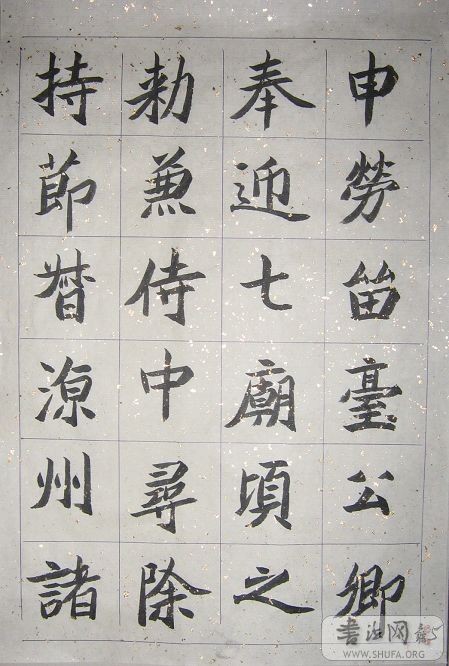 申勞留臺公卿
奉迎七廟頃之
勅兼侍中尋除
持節督涼州諸
書法网
WWW.SHUFA.ORG